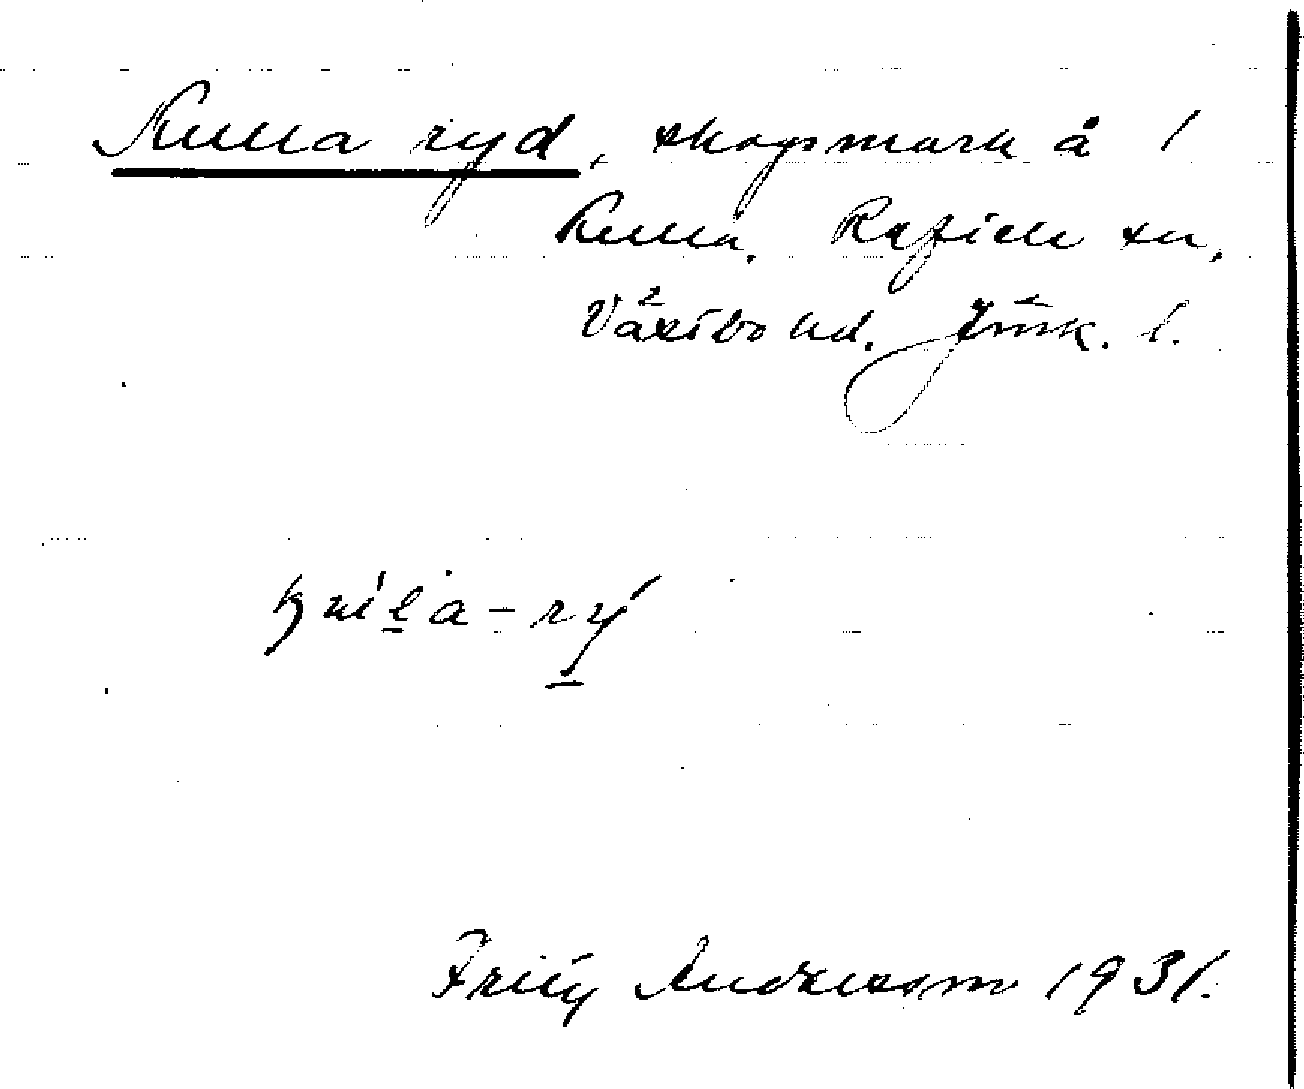 Kulla ryd, skogsmark å 1
Kulla. Reftele sn,
Västbo hd. Jönk. l.
Fritz Andersson 1931.